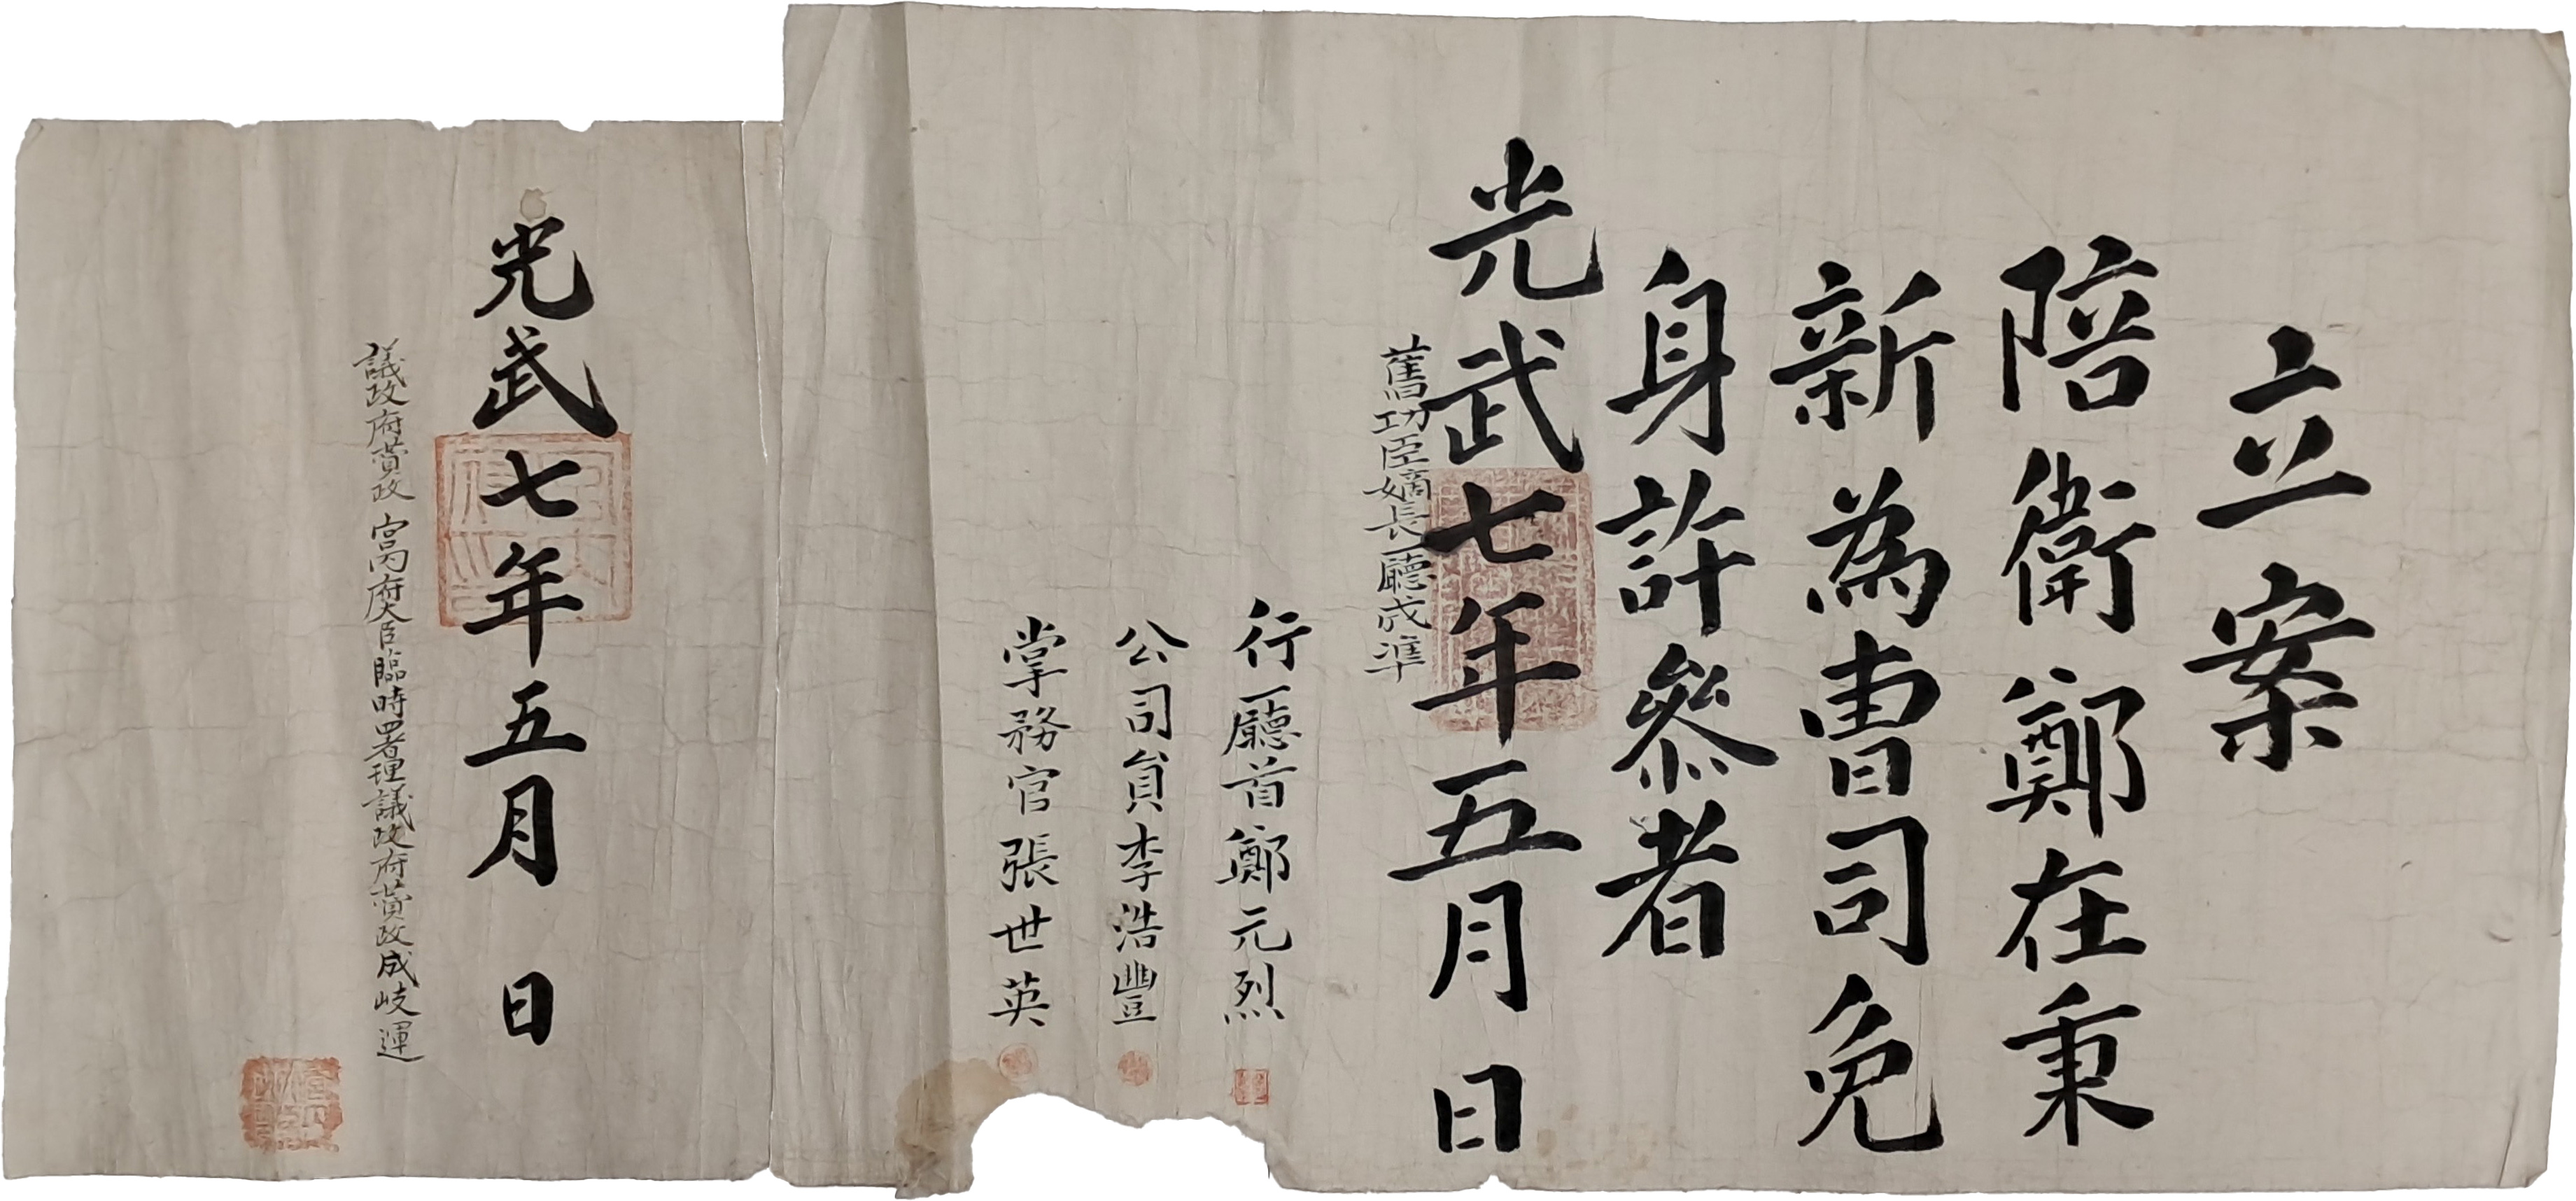 立案
陪衛鄭在秉
新為曺司免
身許參者
光武七年五月 日
舊功臣嫡長廳成準
行廳首鄭元烈
公司貟李浩豐
掌務官張世英
光武七年五月 日
議政府賛政 宮內府大臣臨時署理議政府賛政成岐運